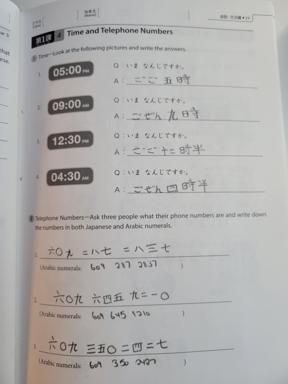 第1課 4 Time and Telephone Numbers
Time—Look at the following pictures and write the answers.
1. 05:00 PM
Q：いま なんじですか。
A：ごご 五時
2. 09:00 AM
Q：いま なんじですか。
A：ごぜん 九時
3. 12:30 PM
Q：いま なんじですか。
A：ごご 十二時半
4. 04:30 AM
Q：いま なんじですか。
A：ごぜん 四時半
Telephone Numbers—Ask three people what their phone numbers are and write down
the numbers in both Japanese and Arabic numerals.
1. 六〇九 二八七 二八三七
(Arabic numerals: 609 287 2837 )
2. 六〇九 六四五 九二一〇
(Arabic numerals: 609 645 )
3. 六〇九 三五〇 二四二七
(Arabic numerals: 609 350 2427 )